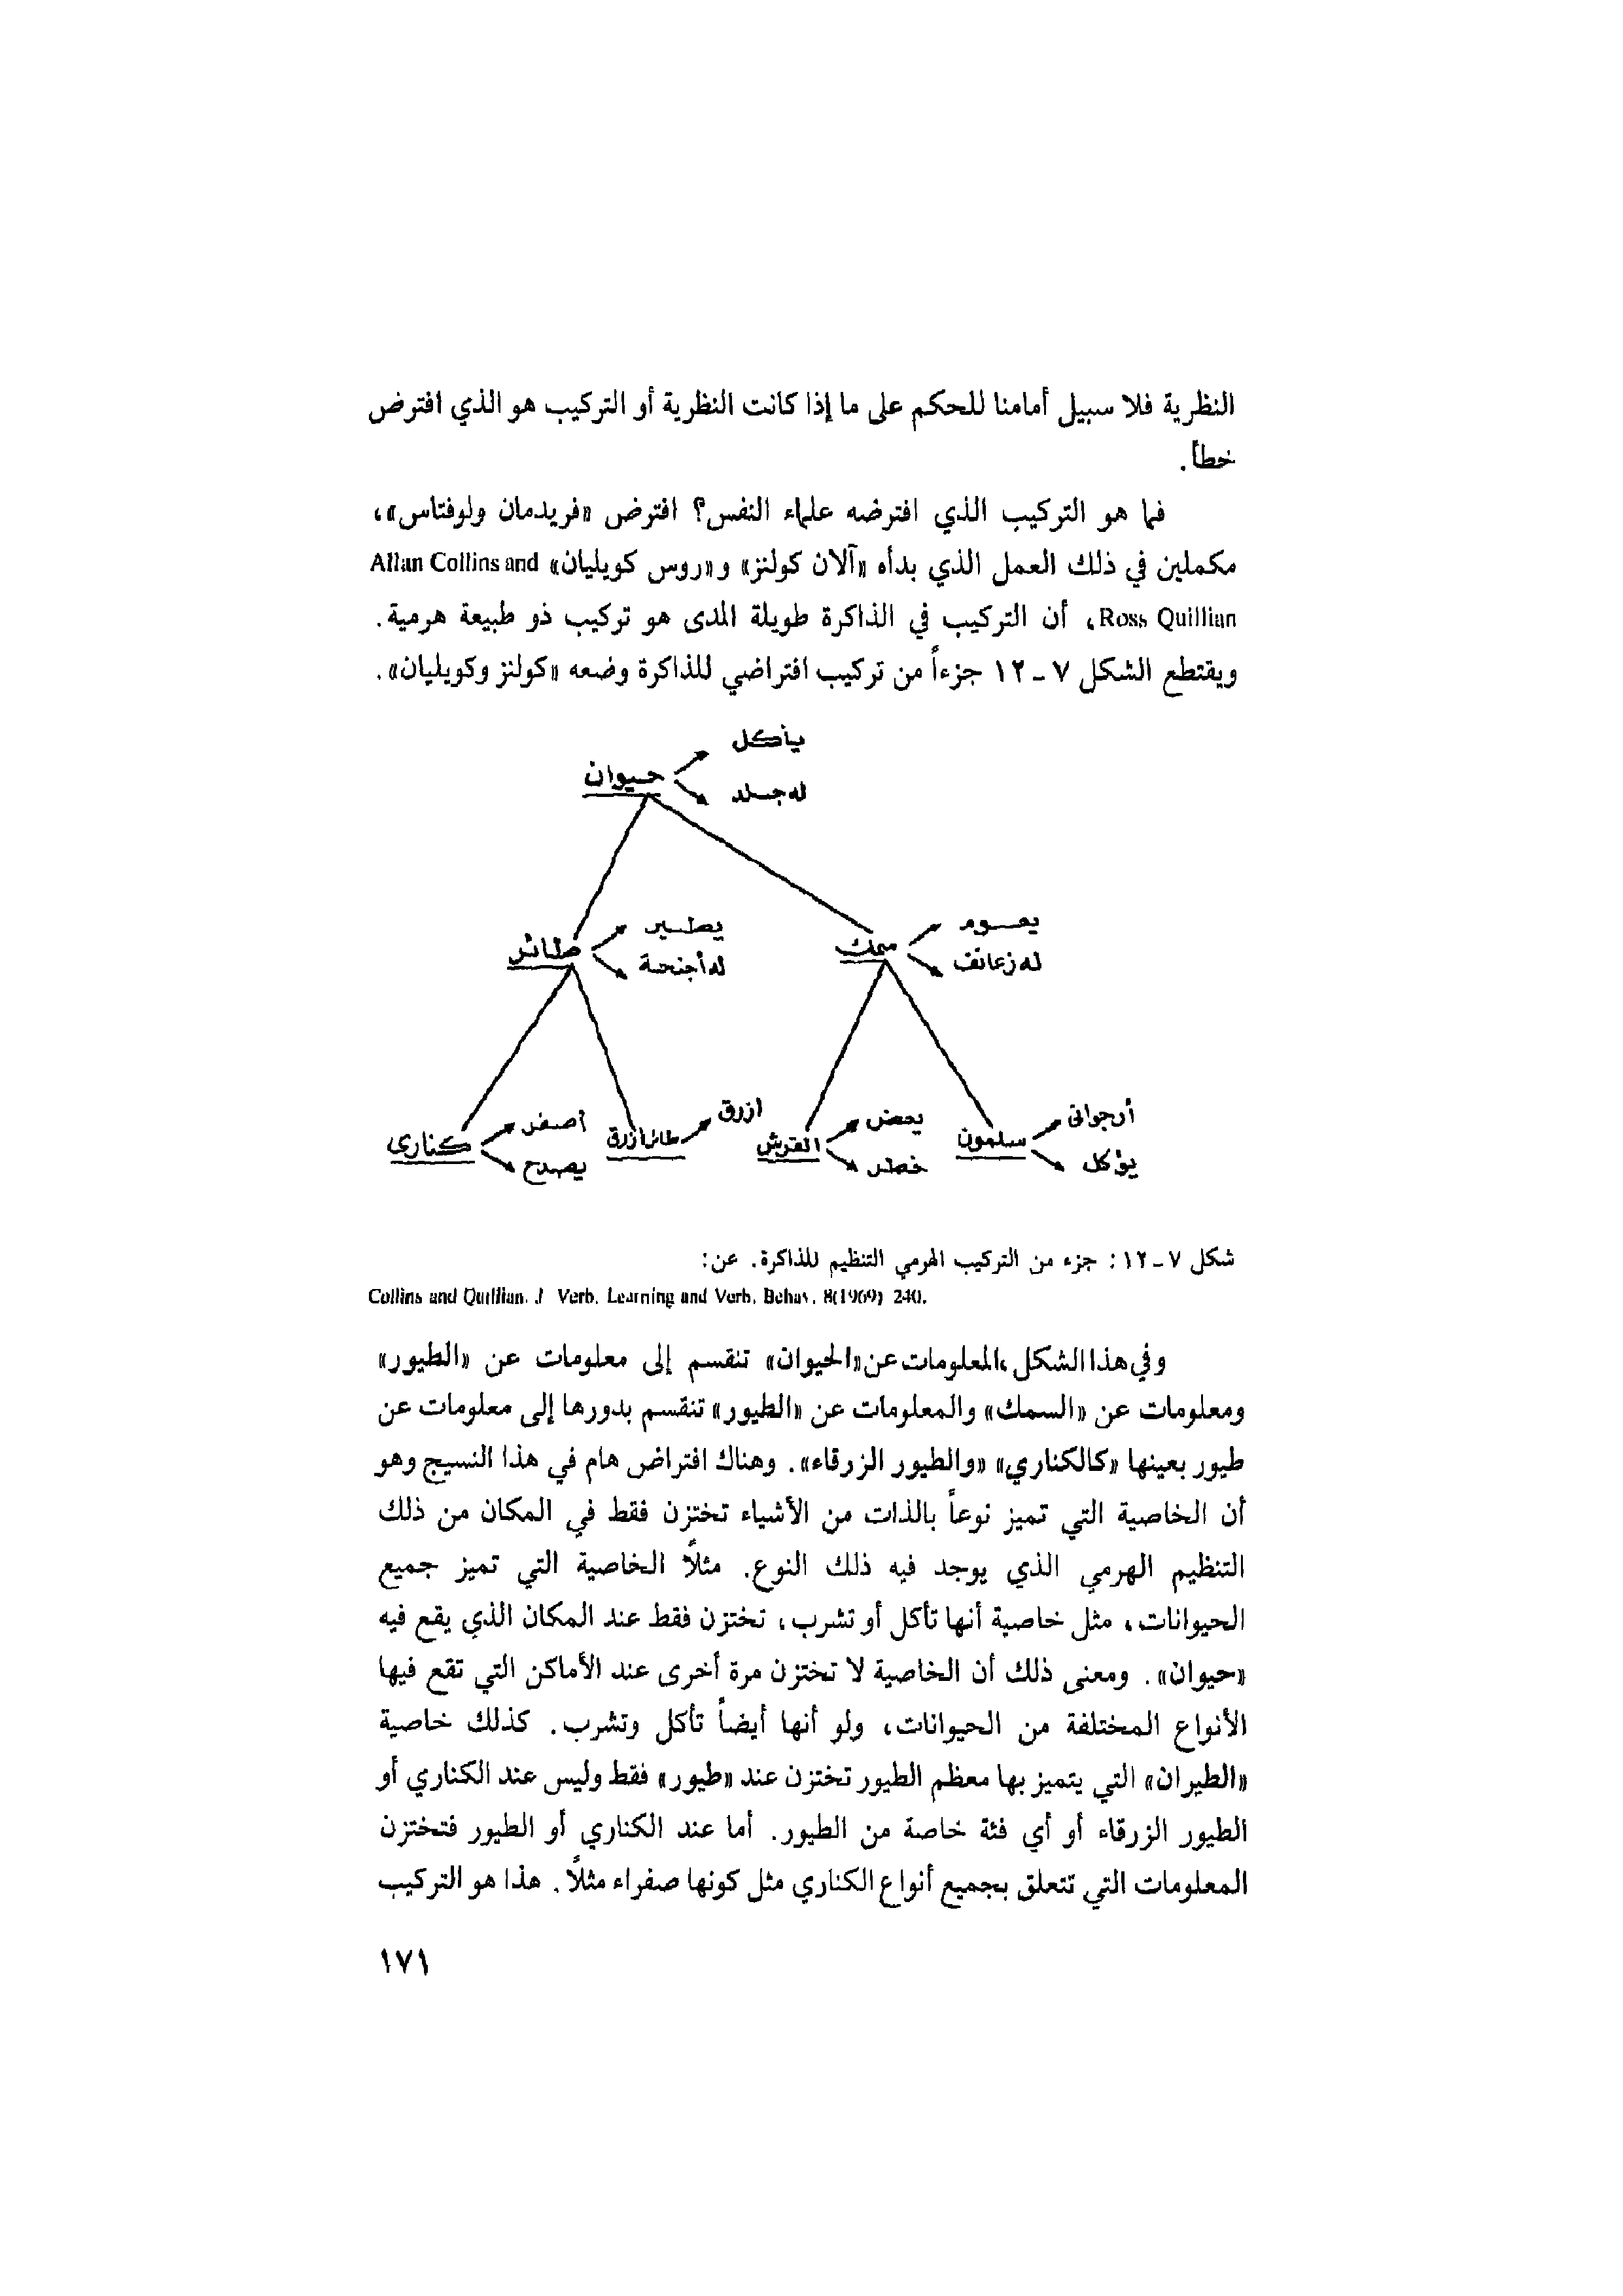 النظرية فلا سبيل أمامنا للحكم على ما إذا كانت النظرية أو التركيب هو الذي افترض
خطأ.
فما هو التركيب الذي افترضه علماء النفس؟ افترض «فريدمان ولوفتاس»،
مكملين في ذلك العمل الذي بدأه «آلان كولنز» و«روس كويليان» Allan Collins and
Ross Quillian، أن التركيب في الذاكرة طويلة المدى هو تركيب ذو طبيعة هرمية.
ويقتطع الشكل ٧ـ١٢ جزءاً من تركيب افتراضي للذاكرة وضعه «كولنز وكويليان».
يأكل
حيوان
له جلد
يعوم
يطير
سمك
طائر
له زعانف
له أجنحة
أرجوانى
يعض
ازرق
أصفر
سلمون
القرش
طائر ازرق
كنارى
يؤكل
خطر
يصدح
شكل ٧ـ١٢: جزء من التركيب الهرمي التنظيم للذاكرة. عن:
Collins and Quillian. J Verb. Learning and Verb. Behav. 8(1969) 240.
وفي هذا الشكل،المعلومات عن«الحيوان» تنقسم إلى معلومات عن «الطيور»
ومعلومات عن «السمك» والمعلومات عن «الطيور» تنقسم بدورها إلى معلومات عن
طيور بعينها «كالكناري» «والطيور الزرقاء». وهناك افتراض هام في هذا النسيج وهو
أن الخاصية التي تميز نوعاً بالذات من الأشياء تختزن فقط في المكان من ذلك
التنظيم الهرمي الذي يوجد فيه ذلك النوع. مثلاً الخاصية التي تميز جميع
الحيوانات، مثل خاصية أنها تأكل أو تشرب، تختزن فقط عند المكان الذي يقع فيه
«حيوان». ومعنى ذلك أن الخاصية لا تختزن مرة أخرى عند الأماكن التي تقع فيها
الأنواع المختلفة من الحيوانات، ولو أنها أيضاً تأكل وتشرب. كذلك خاصية
«الطيران» التي يتميز بها معظم الطيور تختزن عند «طيور» فقط وليس عند الكناري أو
الطيور الزرقاء أو أي فئة خاصة من الطيور. أما عند الكناري أو الطيور فتختزن
المعلومات التي تتعلق بجميع أنواع الكناري مثل كونها صفراء مثلاً. هذا هو التركيب
١٧١